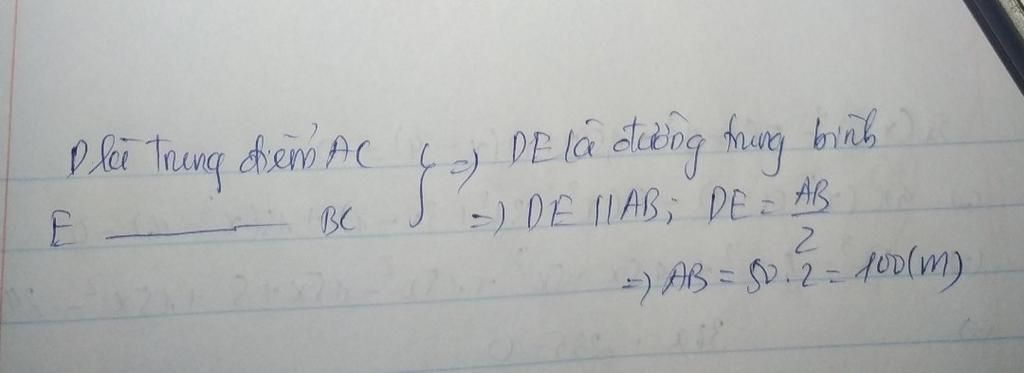 D là trung điểm AC } => DE là đường trung bình
E ——— BC => DE // AB; DE = AB/2
=> AB = 50.2 = 100(m)